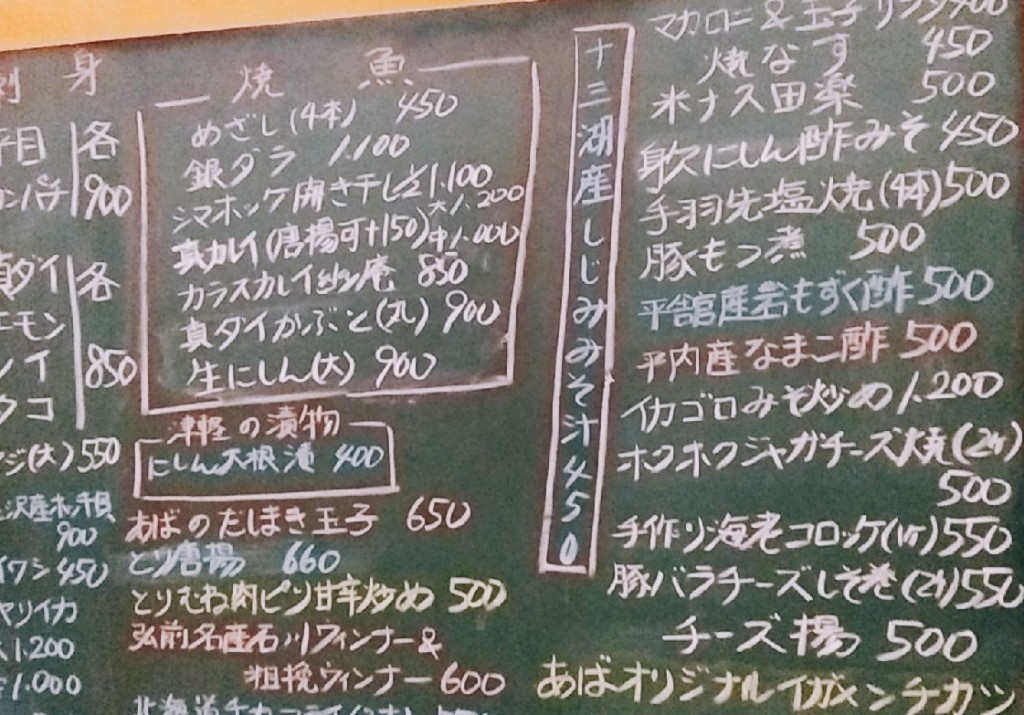 刺身
平目 各
カンパチ 900
真ダイ 各
850
タコ
アジ(大) 550
900
イワシ 450
ヤリイカ
大1.200
1.000
焼魚
めざし(4本) 450
銀ダラ 1.100
シマホッケ開き干し1/2 1.100
真カレイ(唐揚可+150) 大1.200 中1.000
カラスカレイ幽庵 850
真ダイかぶと(丸) 900
生にしん(大) 900
津軽の漬物
にしん大根漬 400
あばのだしまき玉子 650
とり唐揚 660
とりむね肉ピリ甘辛炒め 500
弘前名産石川ウィンナー&
粗挽ウィンナー 600
十三湖産しじみみそ汁450
マカロニ&玉子サラダ400
焼なす 450
米ナス田楽 500
身欠にしん酢みそ 450
手羽先塩焼(4本) 500
豚もつ煮 500
平舘産岩もずく酢 500
平内産なまこ酢 500
イカゴロみそ炒め 1.200
ホクホクジャガチーズ焼(2ヶ)
500
手作り海老コロッケ(1ヶ) 550
豚バラチーズしそ巻(2ヶ) 550
チーズ揚 500
あばオリジナルイガメンチカツ